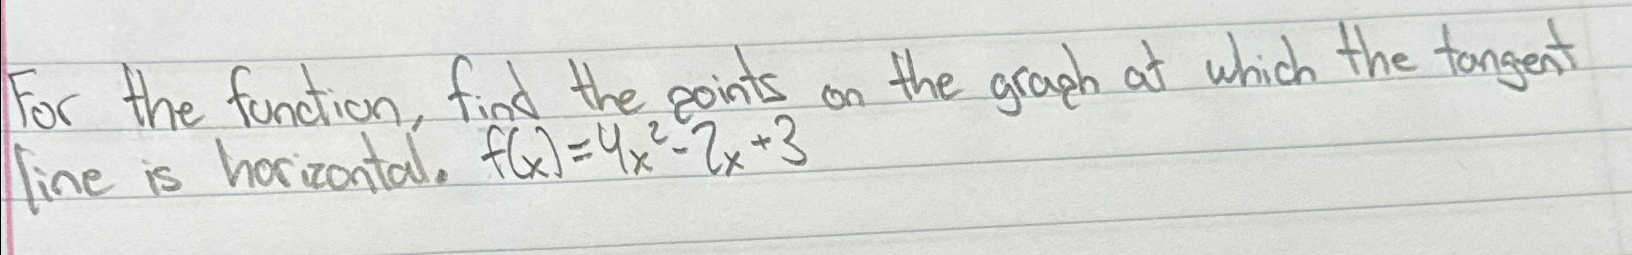 For the function, find the points on the graph at which the tangent
line is horizontal. f(x)=4x²-2x+3